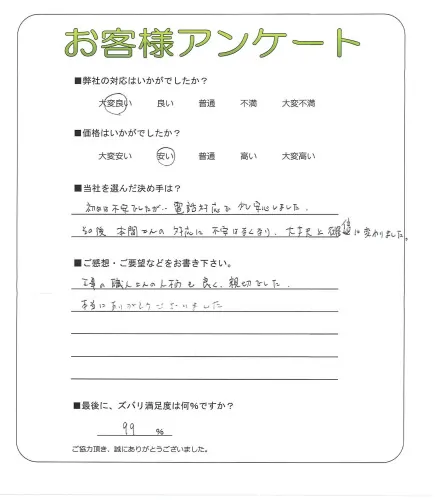 お客様アンケート
■弊社の対応はいかがでしたか？
大変良い 良い 普通 不満 大変不満
■価格はいかがでしたか？
大変安い 安い 普通 高い 大変高い
■当社を選んだ決め手は？
初めは不安でしたが、電話対応で少し安心しました。
その後 本間さんの対応に不安はなくなり、大丈夫と確信に変わりました。
■ご感想・ご要望などをお書き下さい。
工事の職人さんの人柄も良く、親切でした。
本当にありがとうございました
■最後に、ズバリ満足度は何％ですか？
99 %
ご協力頂き、誠にありがとうございました。